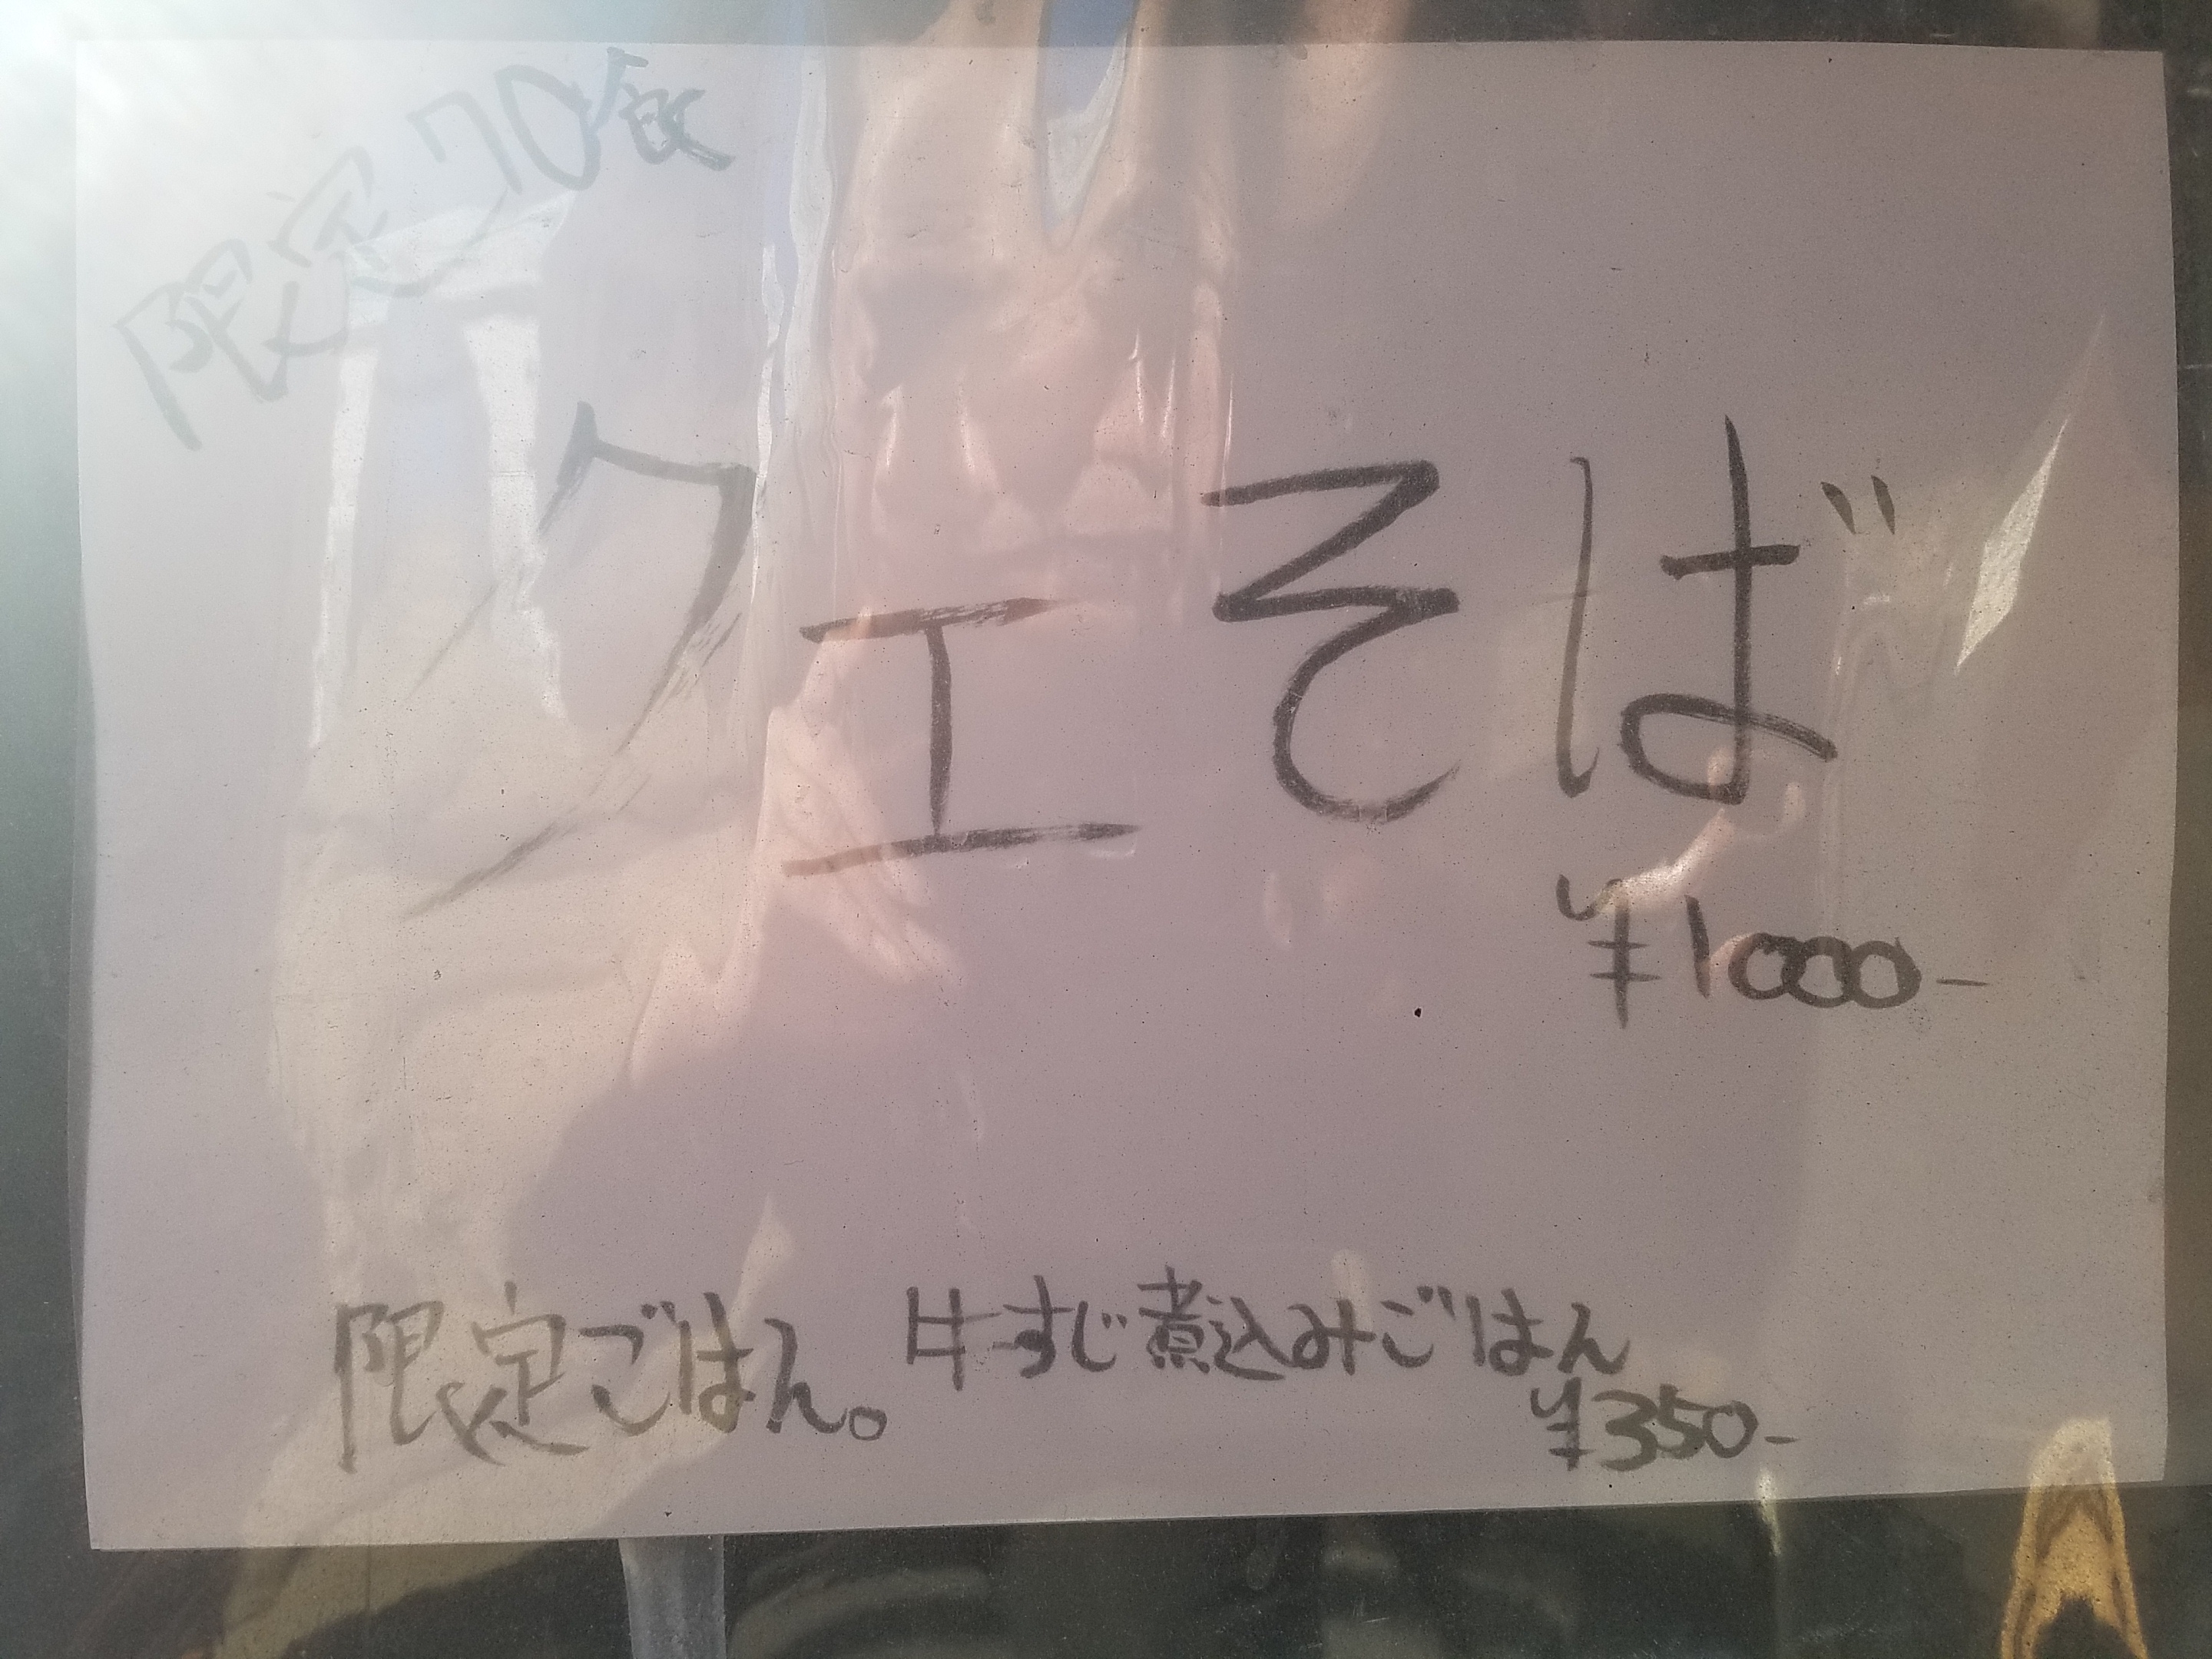 限定70食
クエそば
¥1000-
限定ごはん。牛すじ煮込みごはん
¥350-